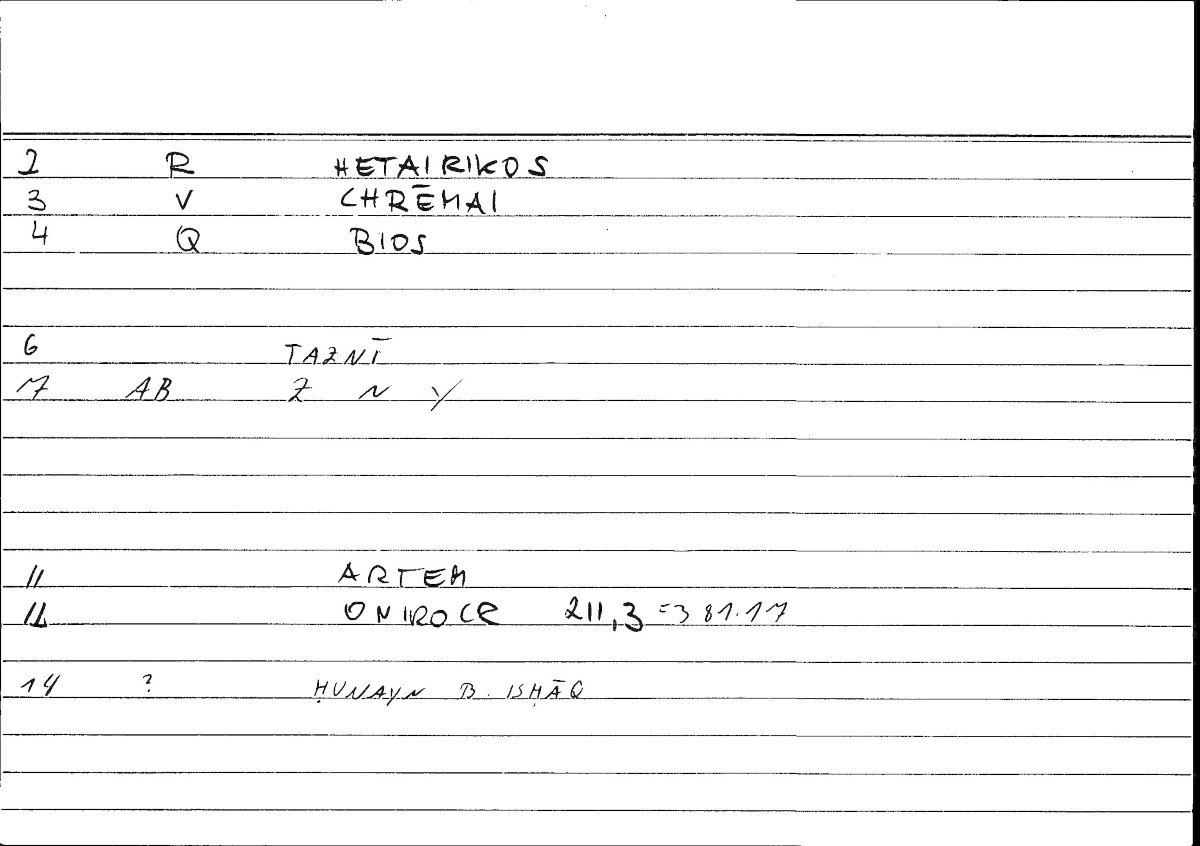 2 R HETAIRIKOS
3 V CHRĒMAI
4 Q BIOS
6 TAZNĪ
7 AB Z N Y
11 ARTEM
12 ONIROCR 211,3 = 381.17
14 ? ḤUNAYN B. ISḤĀQ